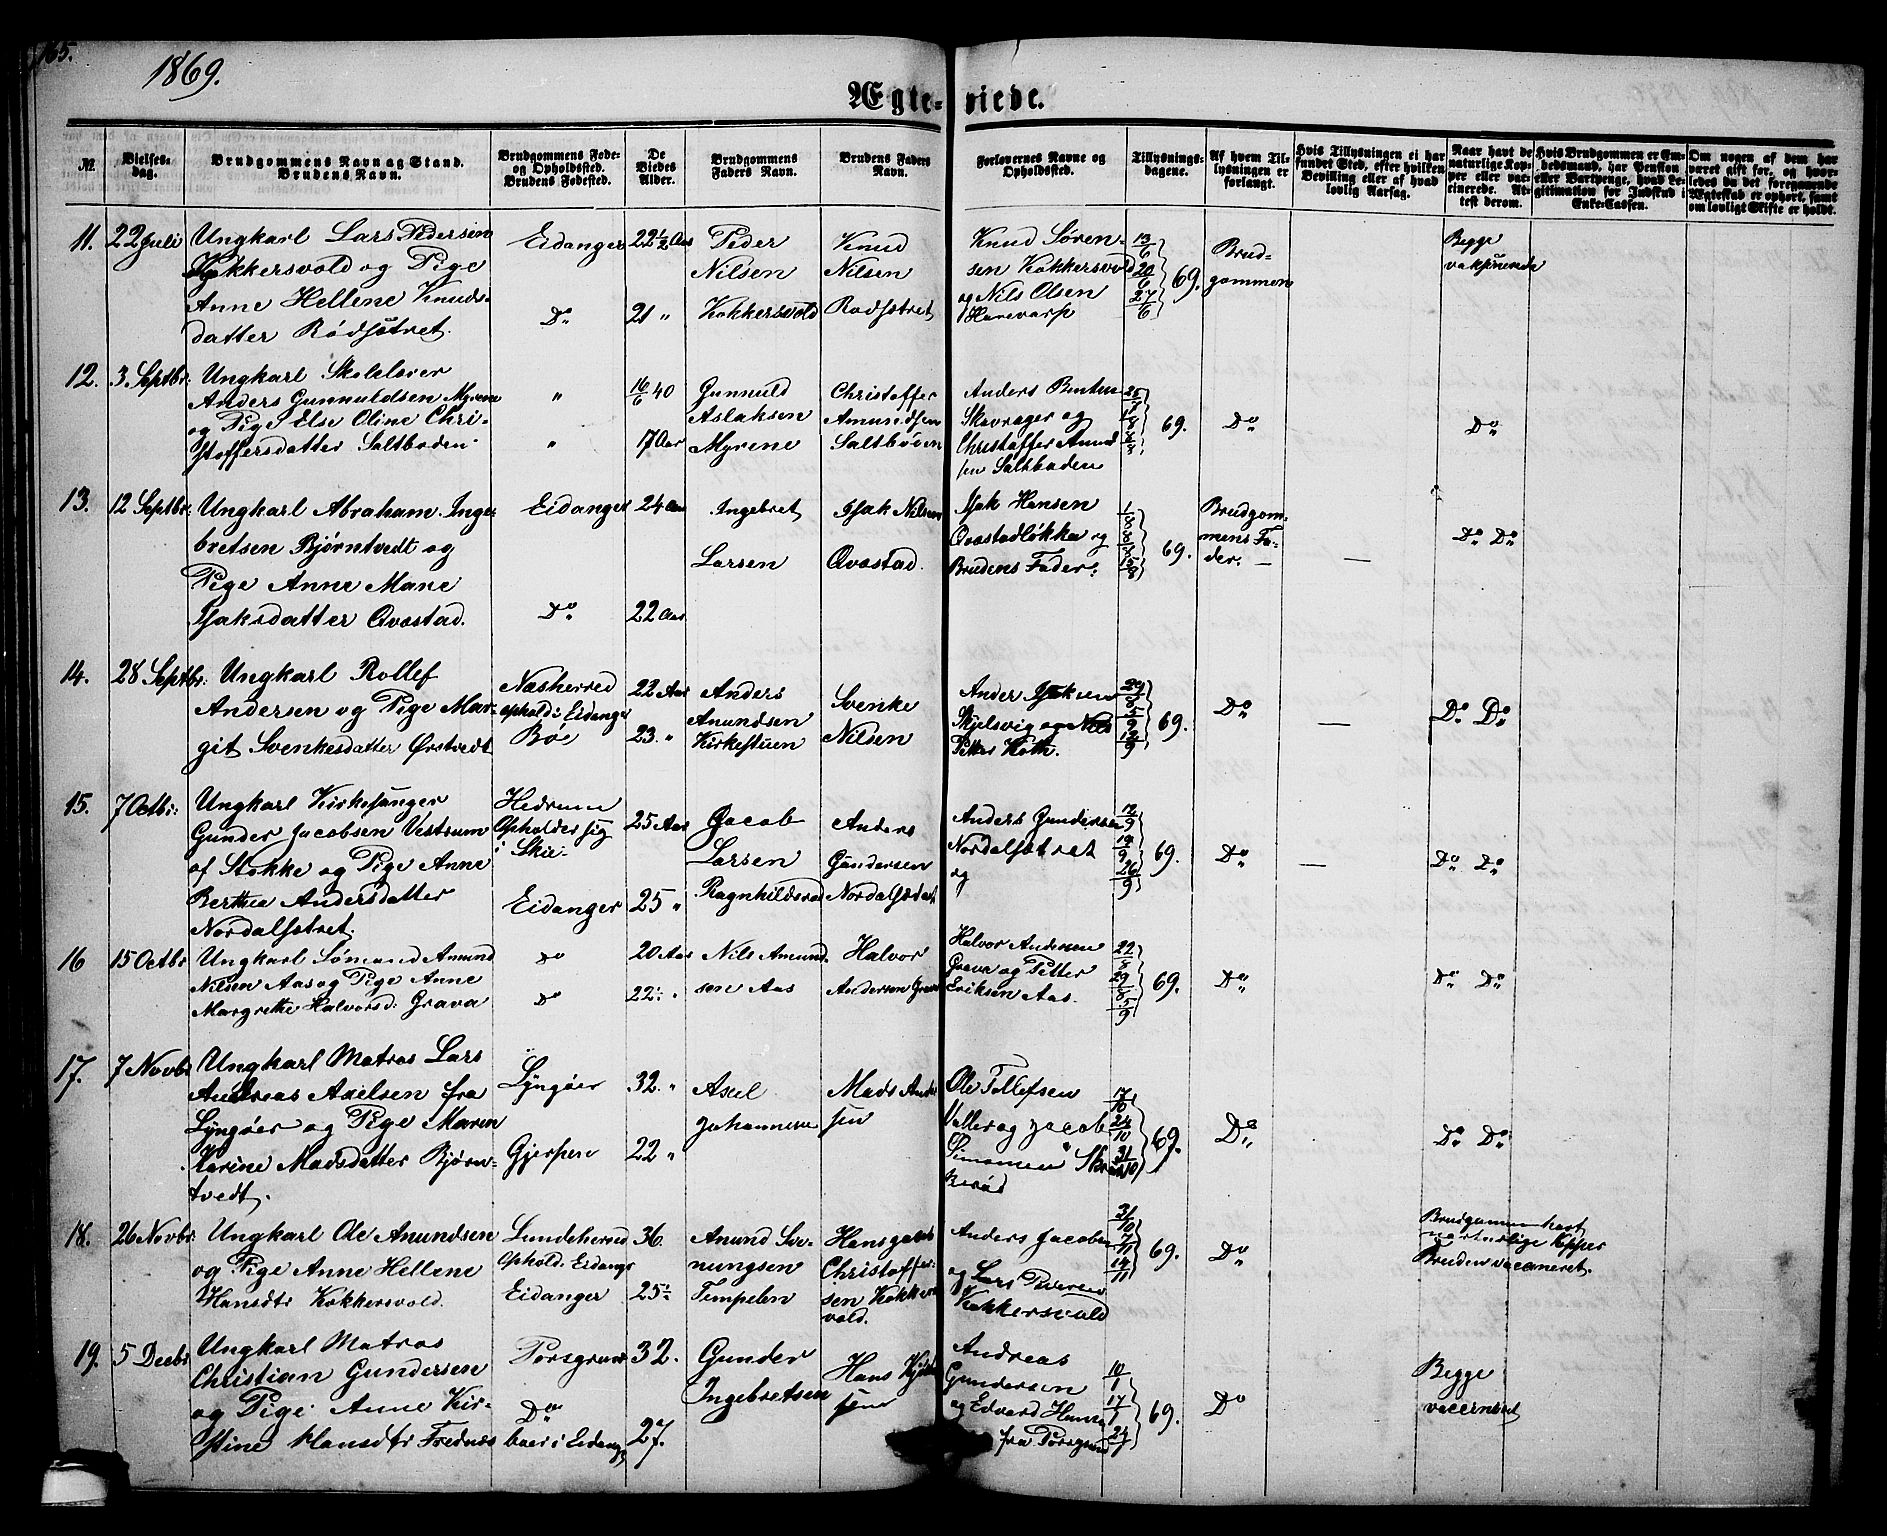 165.
1869.
Ægte-viede.
№
Vielses-
dag.
Brudgommens Navn og Stand.
Brudens Navn.
Brudgommens Føde-
og Opholdssted.
Brudens Fødested.
De
Viedes
Alder.
Brudgommens
Faders Navn.
Brudens Faders
Navn.
Forlovernes Navne og
Opholdssted.
Tillysnings-
dagene.
Af hvem Til-
lysningen er
forlangt.
Hvis Tillysningen ei har
fundet Sted, efter hvilken
Bevilling eller af hvad
lovlig Aarsag.
Naar havt de
naturlige Kop-
per eller vac-
cinerede. At-
test derom.
Hvis Brudgommen er Em-
bedsmand, har Pension
eller Vartpenge, hvad Le-
gitimation for Indskud i
Enke-Cassen.
Om nogen af dem har
været gift før, og hvor-
ledes da det foregaaende
Ægteskab er ophørt, samt
om lovligt Skifte er holdt.
11. 22 Juli
Ungkarl Lars Pedersen
Kokkersvold og Pige
Anne Hellene Knuds-
datter Rödsötret.
Eidanger
Do
22½ Aar
21 "
Peder
Nilsen
Kokkersvold
Knud
Nilsen
Rödsötret
Knud Sören-
sen Kokkersvold
og Nils Olsen
Harevarp
13/6
20/6
27/6
69.
Brud-
gommen
Begge
vaksinerede
12. 3. Septbr:
Ungkarl Skolelærer
Anders Gunnuldsen Myrene
og Pige Else Oline Chri-
stoffersdatter Saltboden
"
"
16/6 40
17 Aar
Gunnuld
Aslaksen
Myrene
Christoffer
Amundsen
Saltboden
Anders Bentsen
Skavrager og
Christoffer Amund
sen Saltboden
69.
Do
Do
13. 12 Septbr:
Ungkarl Abraham Inge-
bretsen Bjørntvedt og
Pige Anne Marie
Isaksdatter Qvæstad.
Eidanger
Do
24 Aar
22 Aar
Ingebret
Larsen
Isak Nilsen
Qvæstad.
Isak Hansen
Qvæstadløkka og
Brudens Fader:
1/8
8/8
15/8
69.
Brudgom-
mens Fa-
der. —
—
Do Do
14. 28 Septbr:
Ungkarl Rollef
Andersen og Pige Mar-
git Svenkesdatter Ørstvedt
Næsherred
ophold i Eidanger
Bøe
22 Aar
23. "
Anders
Anundsen
Kirkestuen
Svenke
Nilsen
Ander Isaksen
Skjelsvig og Nils
Petter Koth.
29/8
5/9
12/9
69.
Do
—
Do Do
15. 7 Octbr:
Ungkarl Kirkesanger
Gunder Jacobsen Vestrum
af Stokke og Pige Anne
Berthea Andersdatter
Nordalsötret.
Hedrum
Opholder sig
i Skie.
Eidanger
25 Aar
25 "
Jacob
Larsen
Ragnhildsröd
Anders
Gundersen
Nordalsötret
Anders Gundersen
Nordalsötret
og
12/9
19/9
26/9
69.
Do
—
Do Do
16 15 Octbr
Ungkarl Sømand Amund
Nilsen Aas og Pige Anne
Margrethe Halvorsd: Grava
Do
Do
20 Aar
22 "
Nils Amund-
sen Aas
Halvor
Andersen Grava
Halvor Andersen
Grava og Petter
Eriksen Aas.
22/8
29/8
5/9
69.
Do
Do Do
17. 7 Novbr
Ungkarl Matros Lars
Andreas Axelsen fra
Lyngøer og Pige Maren
Karine Madsdatter Bjørn-
tvedt.
Lyngøer
Gjerpen
32. "
22 "
Axel
Johannesen
Mads Ander
sen
Ole Tollefsen
Valler og Jacob
Simonsen
17/10
24/10
31/10
69.
Do
Do Do
18. 26 Novbr:
Ungkarl Ole Anundsen
og Pige Anne Hellene
Hansdtr Kokkersvold.
Lundeherred
Ophold. Eidanger
Eidanger
36.
25
Anund Sve-
nungsen
Tempelen
Christoffer-
sen Kokkers
vold.
Anders Jacobsen
og Lars Pedersen
Kokkersvold
31/10
7/11
14/11
69.
Do
Brudgommen havt
naturlige Kopper
Bruden vaccineret.
19. 5 Decbr
Ungkarl Matros
Christian Gundersen
og Pige Anne Kir-
stine Hansdtr Frednæs
Porsgrund
Do
boer i Eidanger
32.
27.
Gunder
Ingebretsen
Hans
Andreas
Gundersen
og Edvard Hansen
fra Porsgrund
10/1
17/1
24/1
69.
Do
Begge
vaccineret